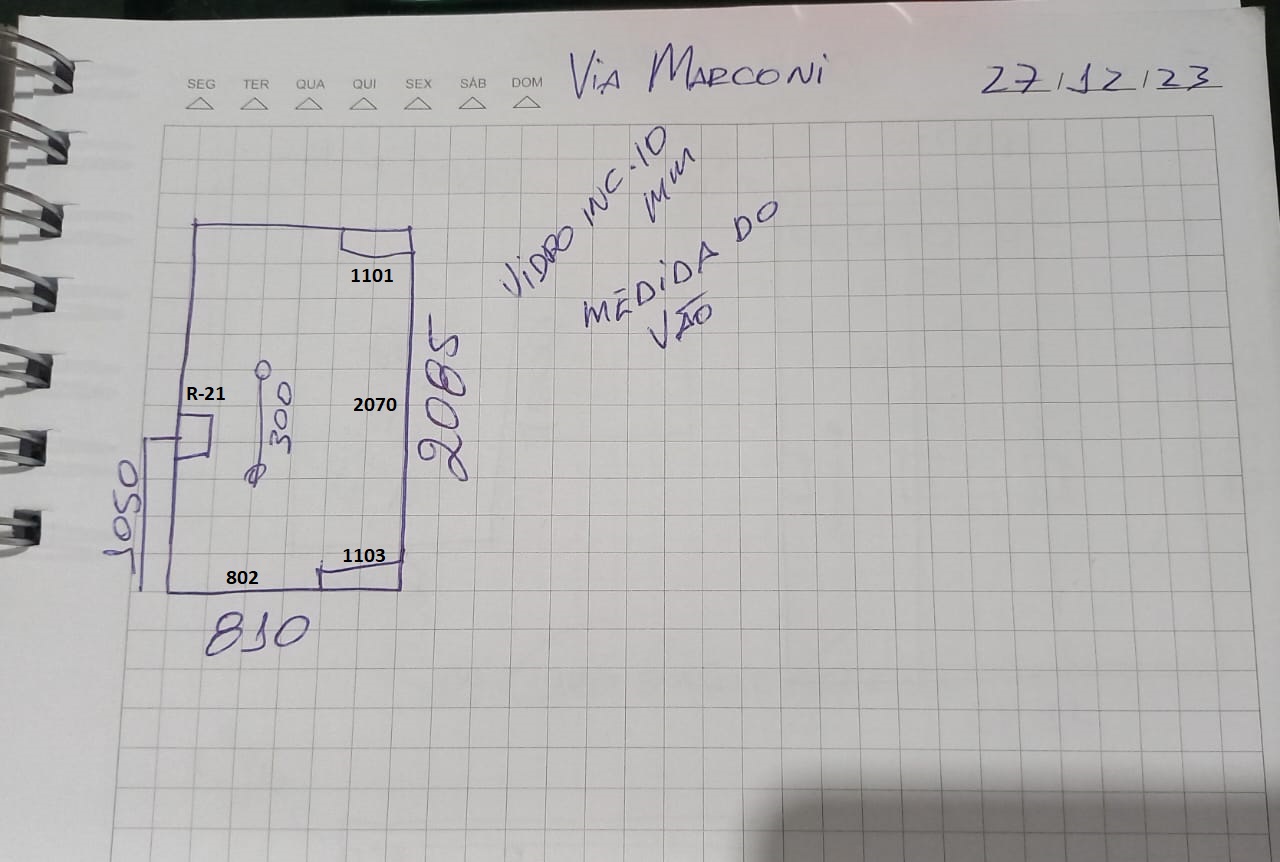 SEG TER QUA QUI SEX SÁB DOM
Via MARCONi
27/12/23
ViDRO INC-10
MM
MEDiDA DO
VÃO
1101
R-21
300
2070
2085
1050
1103
802
810